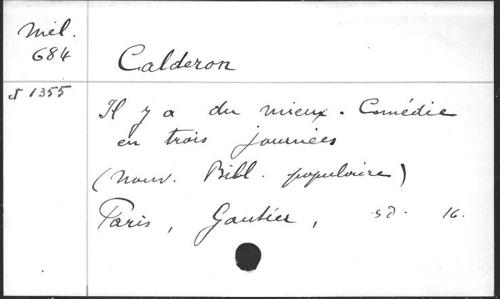 Mél.
684
Calderon
1355
Il y a du mieux. Comédie
en trois journées
(nouv. Bibl. populaire)
Paris, Gautier, sd. 16.